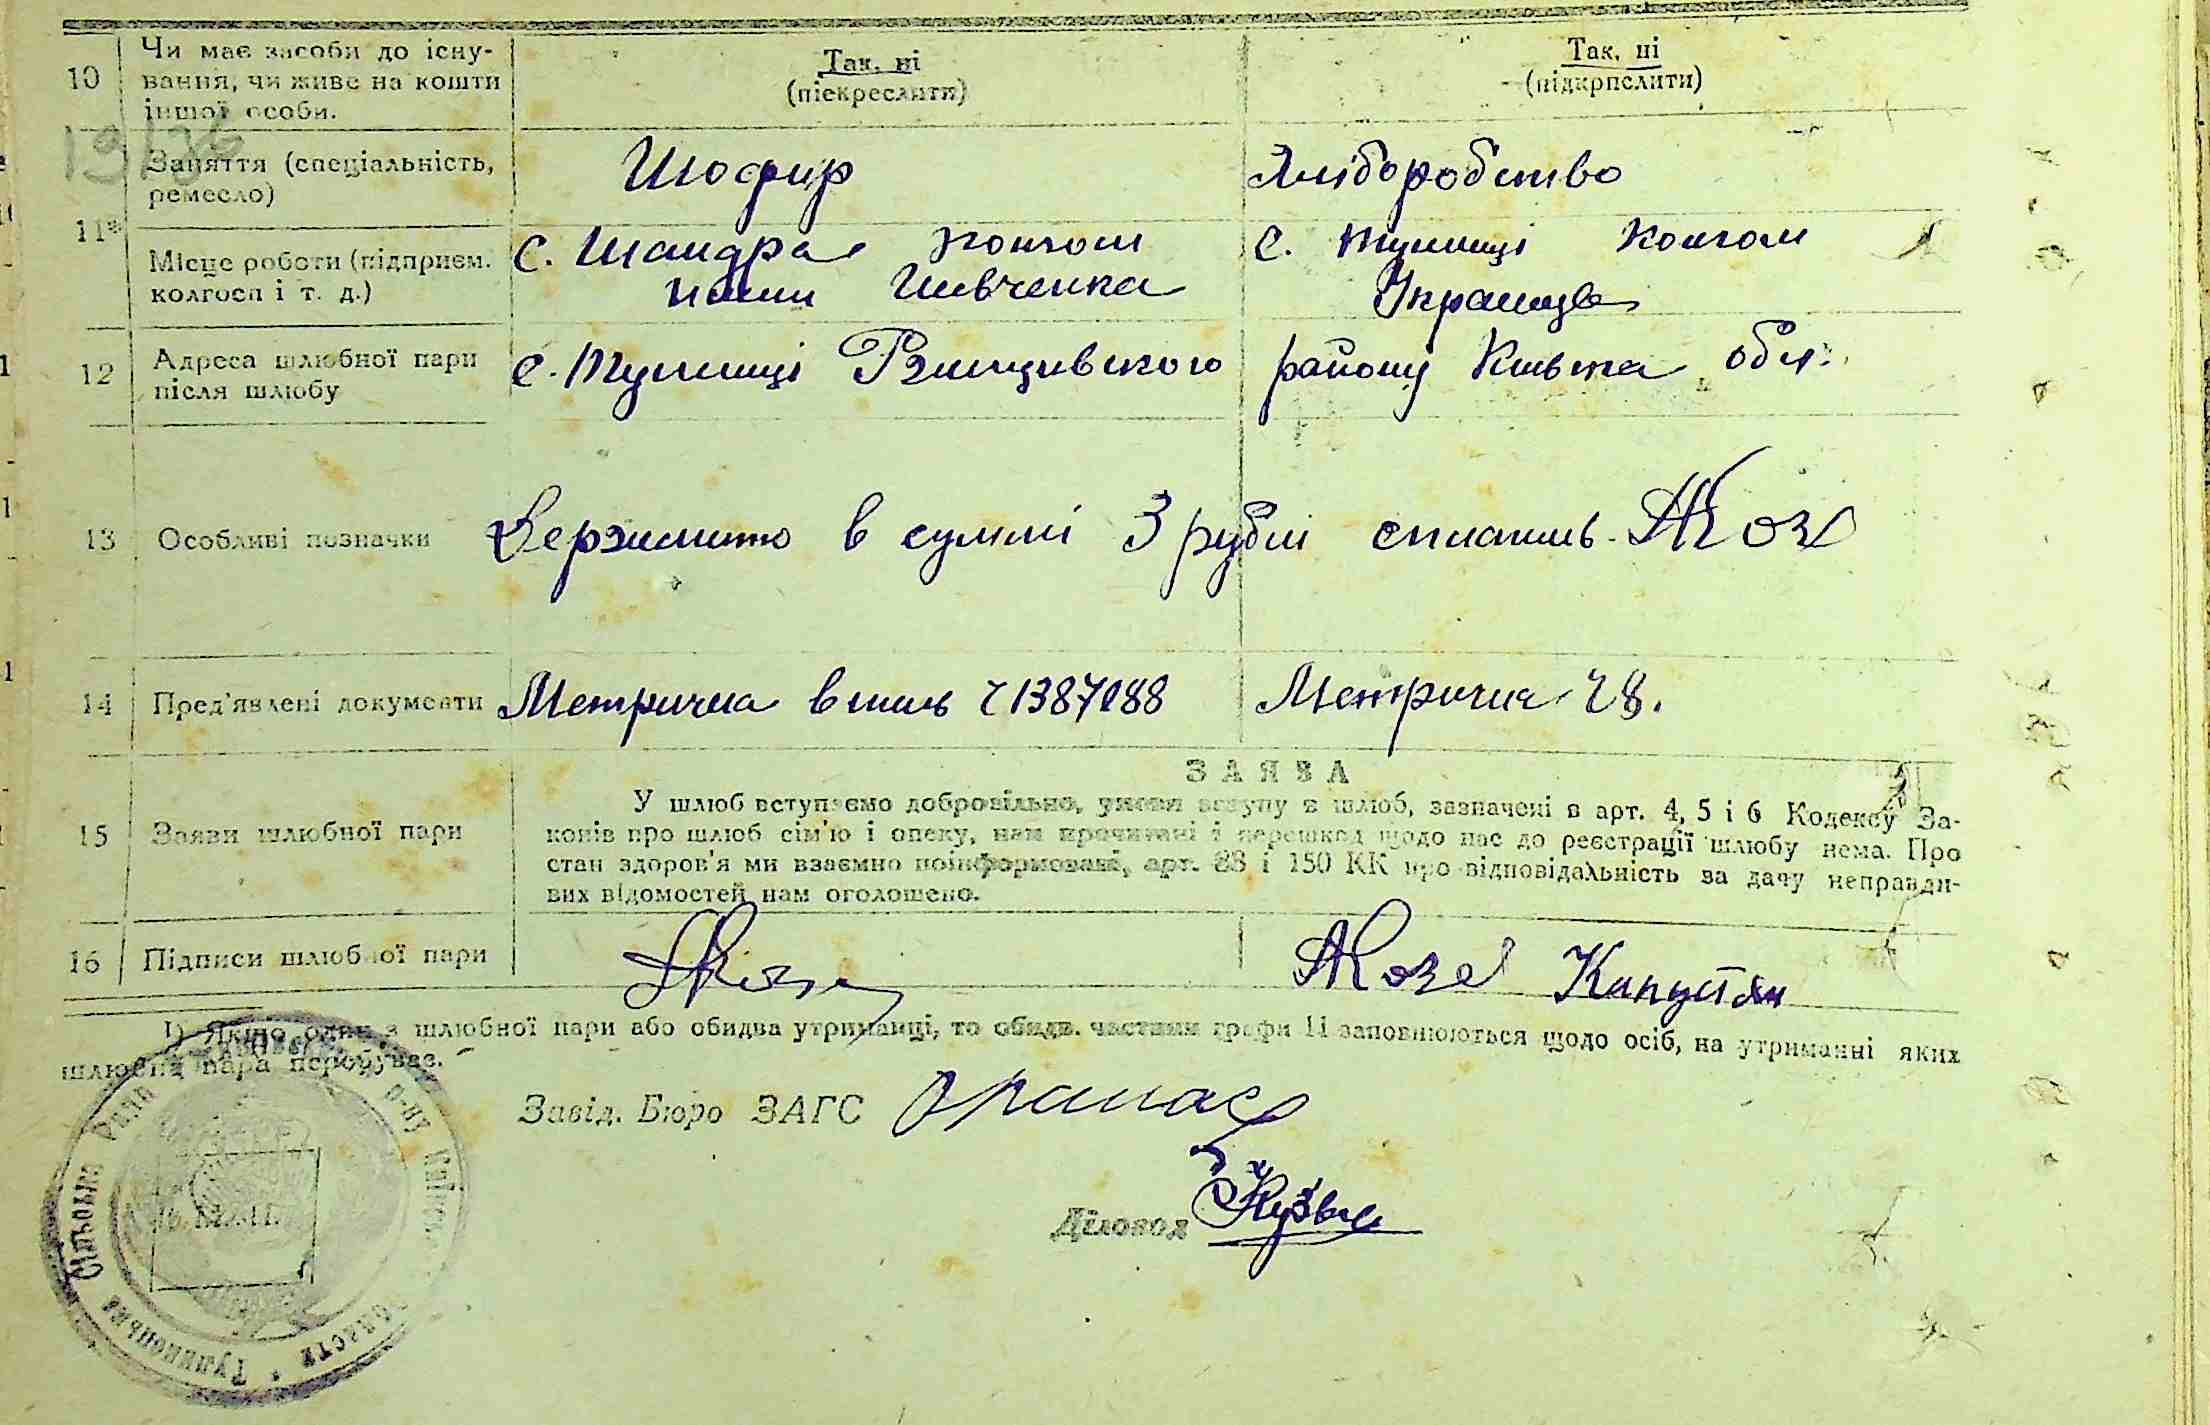 10 Чи має засоби до існу-
вання, чи живе на кошти
іншої особи.
Так, ні
(піекреслити)
Так, ні
(підкрпслити)
19/36
11
Заняття (спеціальність,
ремесло)
Шофир
Хліборобство
Місце роботи (підприєм.
колгосп і т. д.)
С. Шандра колгосп
імени Шевченка
С. Тулинці колгосп
Українця
12 Адреса шлюбної пари
після шлюбу
С. Тулинці Ржищівского району Київска обл.
13 Особливі позначки
Держмито в суммі 3 рублі сплатив.
14 Пред'явлені документи
Метрична випись Ч 1387088
Метрична Ч 8.
15 Заяви шлюбної пари
ЗАЯВА
У шлюб вступаємо добровільно, умови вступу в шлюб, зазначені в арт. 4, 5 і 6 Кодексу За-
конів про шлюб сім'ю і опеку, нам прочитані і перешкод щодо нас до реєстрації шлюбу нема. Про
стан здоров'я ми взаємно поінформовані, арт. 88 і 150 КК про відповідальність за дачу неправди-
вих відомостей нам оголошено.
16 Підписи шлюбної пари
Капустян
1) Якщо один з шлюбної пари або обидва утриманці, то обидв. частини графи 11 заповнюються щодо осіб, на утриманні яких
шлюбна пара перебуває.
Завід. Бюро ЗАГС
Діловод
Тулинецька Сільська Рада
області